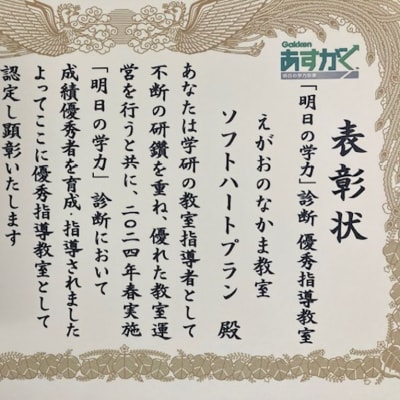 Gakken
あすがく
明日の学力診断
表彰状
「明日の学力」診断 優秀指導教室
えがおのなかま教室
ソフトハートプラン 殿
あなたは学研の教室指導者として
不断の研鑽を重ね、優れた教室運
営を行うと共に、二〇二四年春実施
「明日の学力」診断において
成績優秀者を育成・指導されました
よってここに優秀指導教室として
認定し顕彰いたします